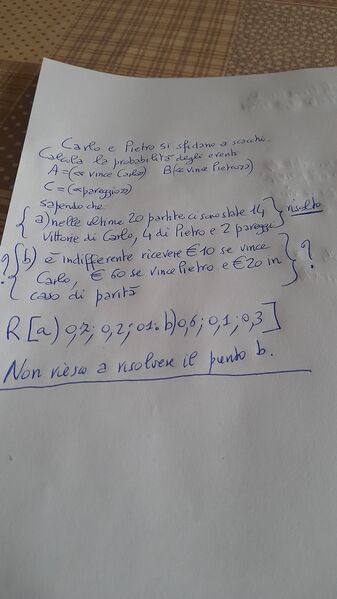 Carlo e Pietro si sfidano a scacchi.
Calcola la probabilità degli eventi
A=(«vince Carlo») B(«vince Pietro»)
C=(«pareggio»)
sapendo che
a) nelle ultime 20 partite ci sono state 14 risolto
vittorie di Carlo, 4 di Pietro e 2 pareggi
? b) è indifferente ricevere € 10 se vince ?
Carlo, € 60 se vince Pietro e € 20 in
caso di parità
R[a) 0,7; 0,2; 01. b) 0,6; 0,1; 0,3]
Non riesco a risolvere il punto b.